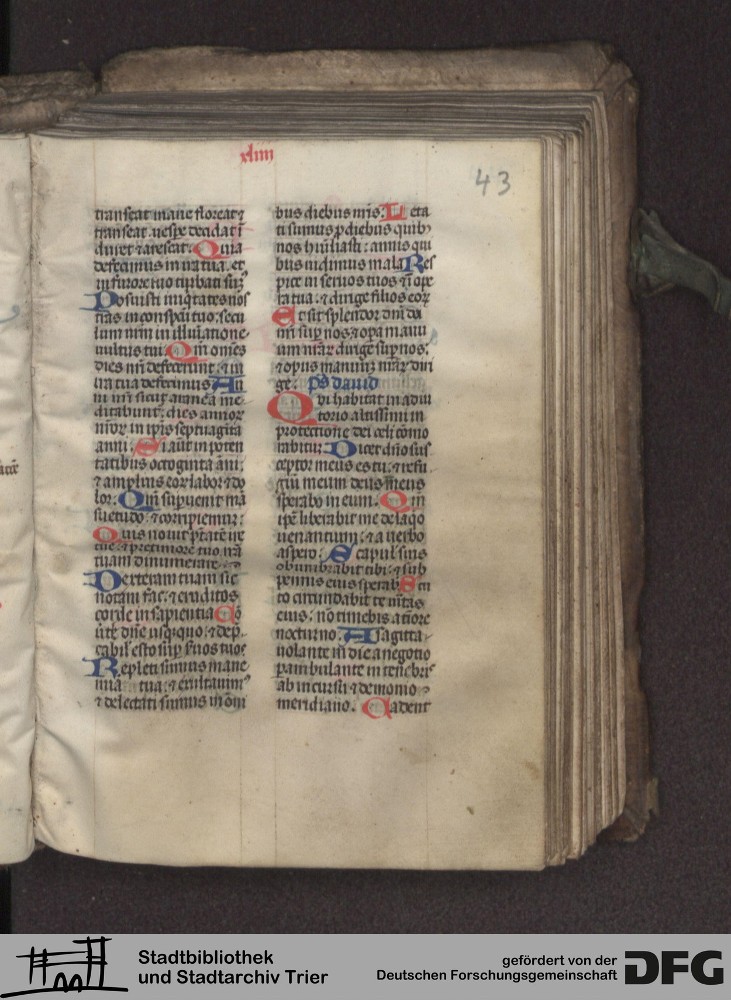 xliiii
43
transeat mane floreat ⁊
transeat. uespe decidat ī
duret ⁊ arescat. Quia
defecimus in ira tua. et
in furore tuo turbati sum̄
Posuisti iniqtates nr̄as
in conspctu tuo. secu
lum nrm̄ in illuīatione
uultus tui. Qm̄ omēs
dies nri̅ defecerunt. ⁊ in
ira tua defecimus An
ni nr̄i sicut aranea me
ditabunt᷑. dies annoꝝ
nr̄oꝝ in ip̄is septuagīta
anni. Si aūt in poten
tatibus octoginta āni.
⁊ amplius eoꝝ labor ⁊ do
lor. Qm̄ supuenit mā
suetudo. ⁊ corripiemur.
Quis nouit ptāte ire
tue. ⁊ pre timore tuo irā
tuam dinumerare.
Dexteram tuam sic
notam fac. ⁊ eruditos
corde in sapientia Cō
ūte dn̄e usqquo. ⁊ dep
cabil' esto sup suos tuos
Repleti sumus mane
mīa tua. ⁊ exultauim᷒
⁊ delectati sumus in om̄i
bus diebus nr̄is. Leta
ti sumus p diebus quib᷒
nos humiliasti. annis qui
bus uidimus mala Res
pice in seruos tuos ⁊ ī ope
ra tua. ⁊ dirige filios eoꝝ
Et sit splendor dn̄i di
nr̄i sup nos ⁊ opa manu
um nr̄aꝝ dirige sup nos.
⁊ opus manuum nr̄aꝝ diri
ge. ps̄ dauid
Qui habitat in adiu
torio altissimi in
protectione dei celi cōmo
rabitur. Dicet dn̄o sus
ceptor meus es tu. ⁊ refu
gium meum deus meus
sperabo in eum. Qm̄
ip̄e liberabit me de laqo
uenantium. ⁊ a uerbo
aspero. Scapulis suis
obumbrabit tibi. ⁊ sub
pennis eius sperab᷒ Scu
to circundabit te uitas
eius. nō timebis a tiore
nocturno. A sagitta
uolante in die a negotio
pambulante in tenebris
ab incursu ⁊ demonio
meridiano. Cadent
Stadtbibliothek
und Stadtarchiv Trier
gefördert von der
Deutschen Forschungsgemeinschaft
DFG